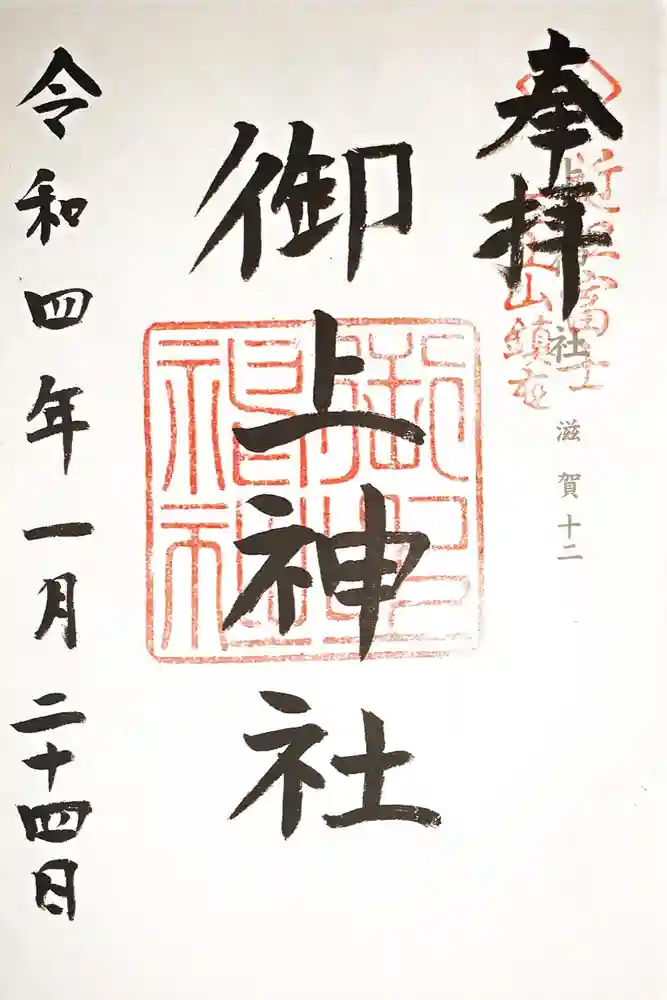 奉拝
近江富士
三上山鎮座
社
滋賀十二
御上神社
御上神社
令和四年一月二十四日